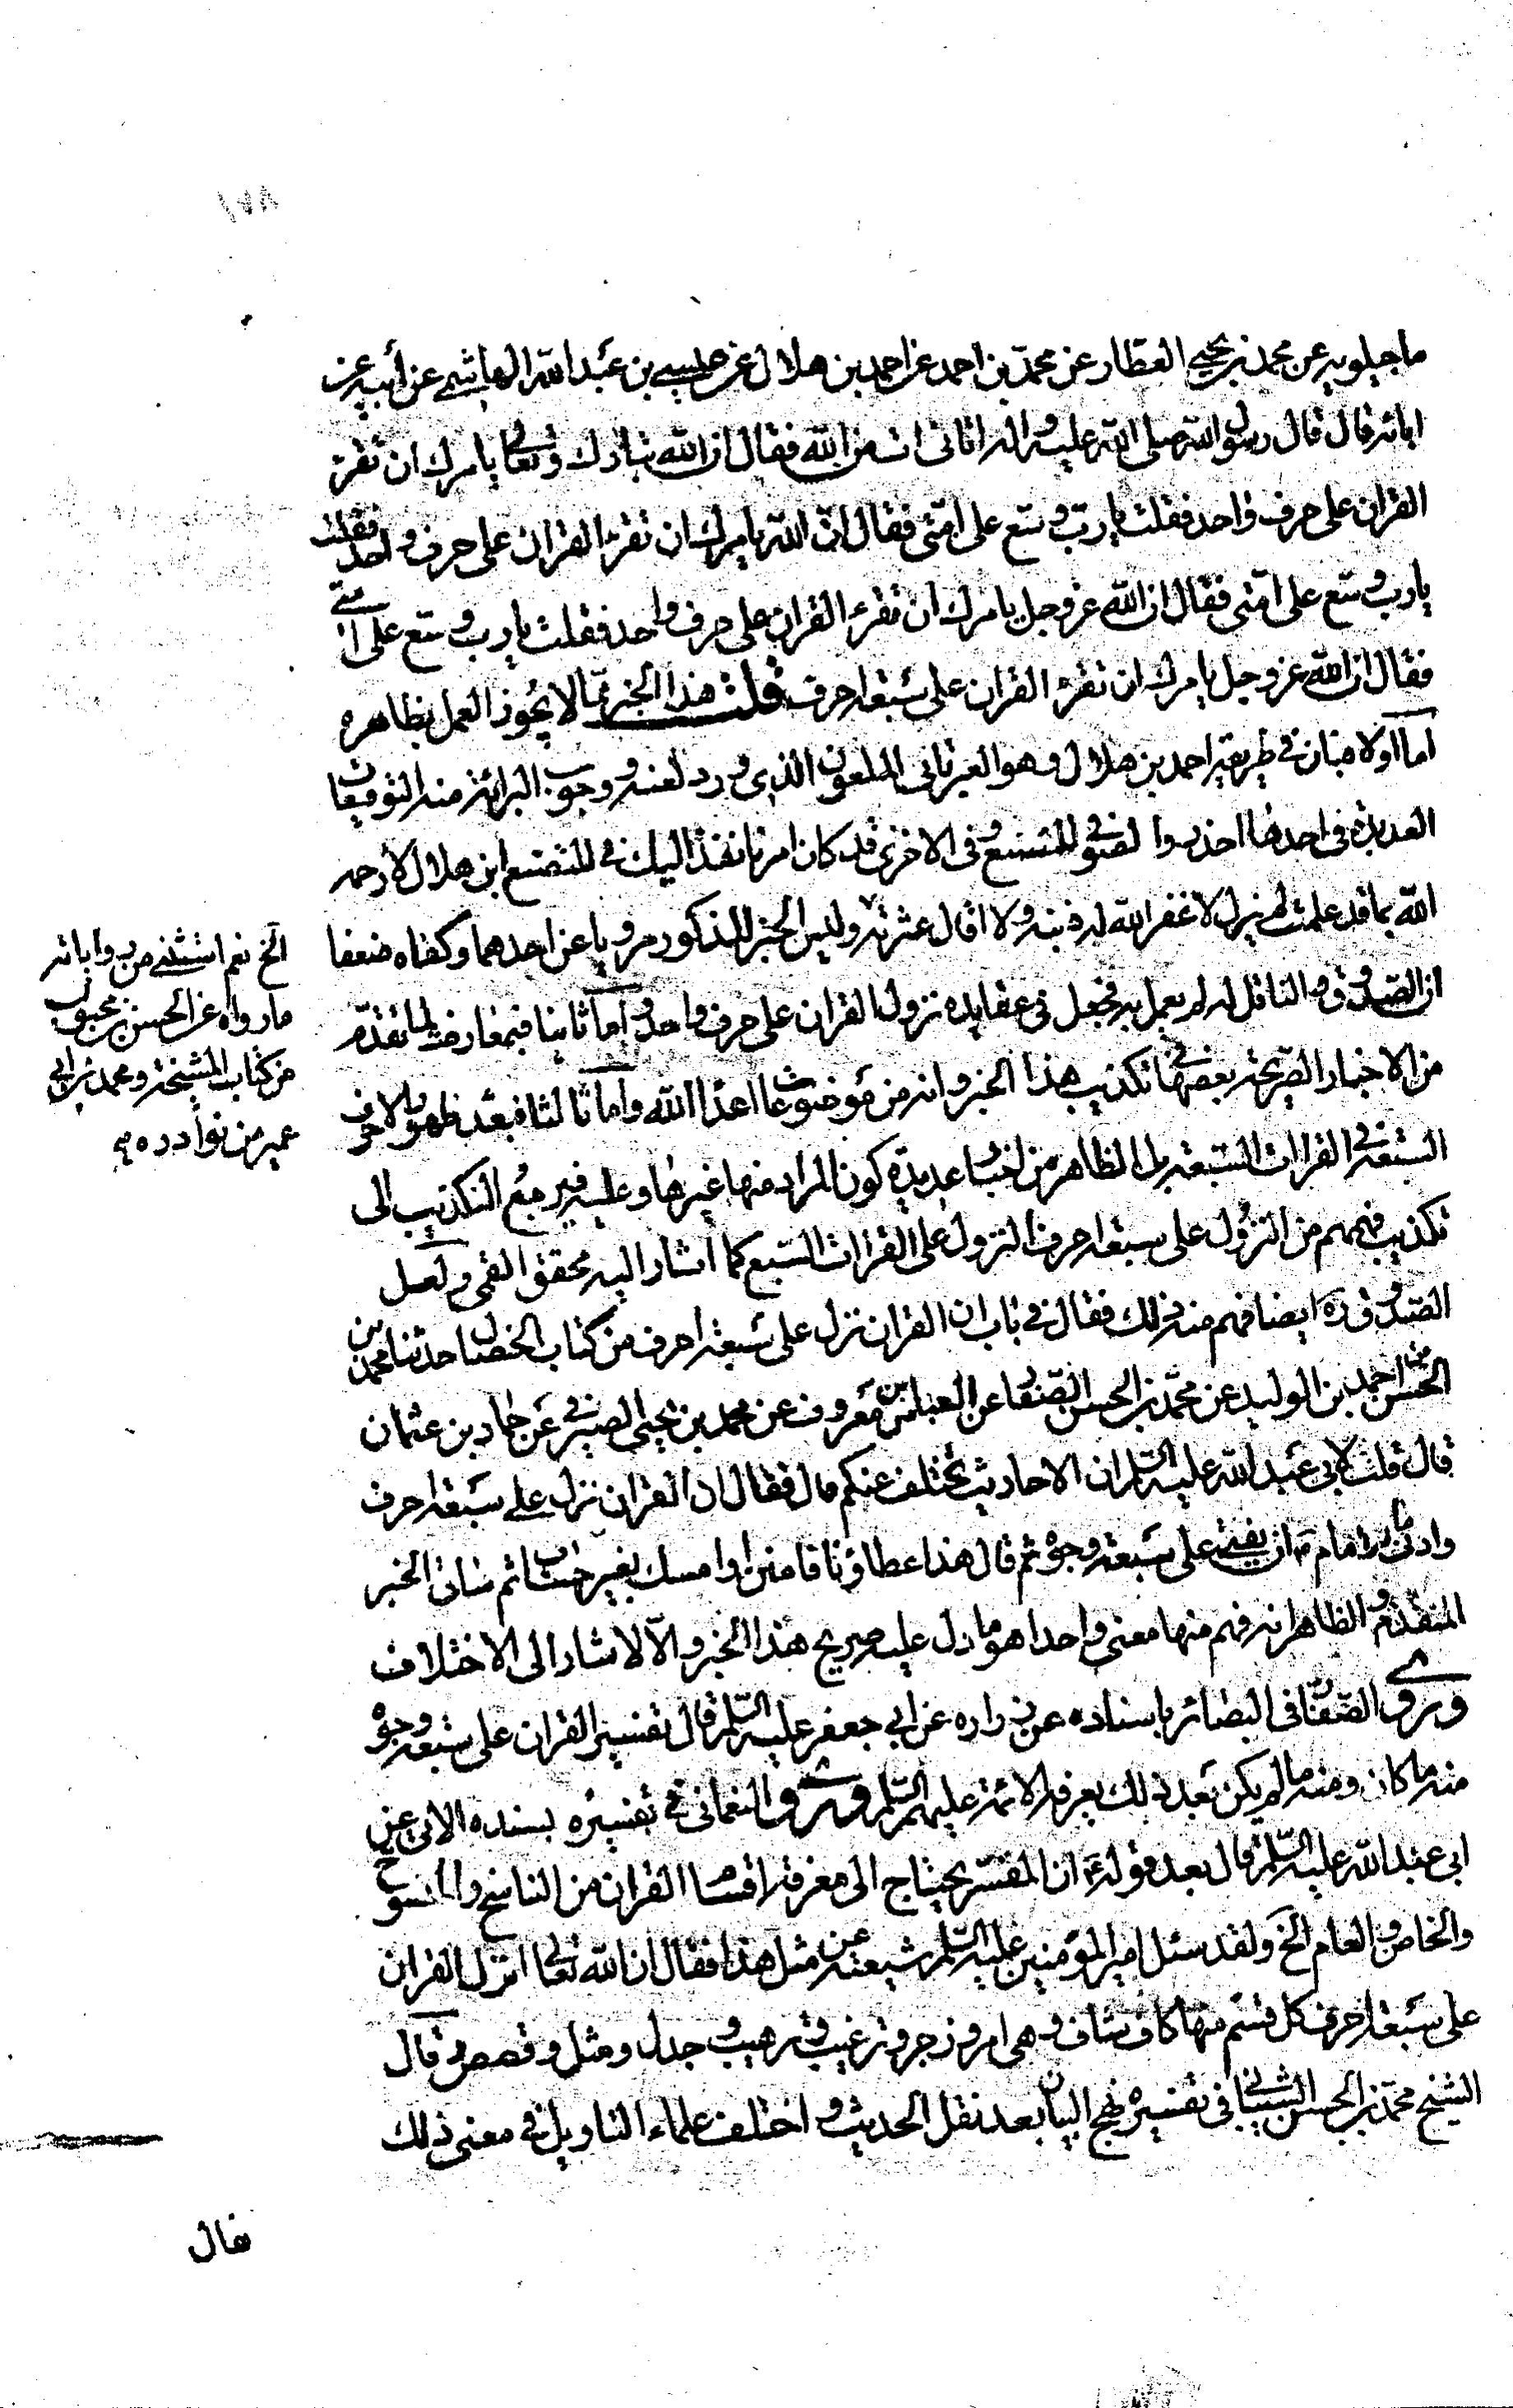 ماجيلويه عن محمد بن يحيى العطار عن محمد بن احمد عن احمد بن هلال عن عيسى بن عبد الله الهاشمي عن أبيه عن
ابائه قال قال رسول الله صلى الله عليه واله اتاني ات من الله فقال ان الله تبارك وتعالى يامرك ان تقرء
القران على حرف واحد فقلت يا رب وسّع على امّتي فقال انّ الله يامرك ان تقرء القران على حرف واحد فقلت
يا رب وسّع على امّتي فقال ان الله عز وجل يامرك ان تقرء القران على حرف واحد فقلت يا رب وسّع على امتي
فقال ان الله عز وجل يامرك ان تقرء القران على سبعة احرف قلت هذا الخبر ممّا لا يجوز العمل بظاهره
اما اولا فبان في طريقه احمد بن هلال وهو العبرتائي الملعون الذي ورد لعنه ووجوب البرائة منه التوقيعات
العديدة في احدها احذروا الصوفي المتصنع وفي الاخرى قد كان امرنا نفذ اليك في المتصنع ابن هلال لا رحمه
الله بما قد علمت لم يزل لا غفر الله له ذنبه ولا اقال عثرته وليس الخبر المذكور مرويا عن احدهما وكفاه ضعفا
ان الصدوق ره الناقل له لم يعمل به فجعل في عقايده نزول القران على حرف واحد واما ثانيا فبمعارضته لما تقدّم
من الاخبار الصريحة بعضها في تكذيب هذا الخبر وانه من موضوعات اعداء الله واما ثالثا فبعد ظهور الاحرف
السبعة في القراات السبعة بل الظاهر من اخبار عديدة كون المراد منها غيرها وعليه فيرجع التكذيب الى
تكذيب فهمهم من النزول على سبعة احرف النزول على القراات السبع كما اشار اليه محقق القمي ولعل
الصدوق ره ايضا فهم منه ذلك فقال في باب ان القران نزل على سبعة احرف من كتاب الخصال حدثنا محمد بن
الحسن بن احمد بن الوليد عن محمد بن الحسن الصفار عن العباس بن معروف عن محمد بن يحيى الصيرفي عن حماد بن عثمان
قال قلت لابي عبد الله عليه السلم ان الاحاديث تختلف عنكم قال فقال ان القران نزل على سبعة احرف
وادنى ما للامام ان يفتي على سبعة وجوه ثم قال هذا عطاؤنا فامنن او امسك بغير حساب ثم ساق الخبر
المتقدم والظاهر انه فهم منها معنى واحدا هو ما دل عليه صريح هذا الخبر والّا لاشار الى الاختلاف
وروى الصفار في البصائر باسناده عن زراره عن ابي جعفر عليه السلم قال تفسير القران على سبعة وجوه
منه ما كان ومنه ما لم يكن بعد ذلك يعرفه الائمة عليهم السلم وروى النعماني في تفسيره بسنده الاتي عن
ابي عبد الله عليه السلم قال بعد قوله ع ان المفسر يحتاج الى معرفة اقسام القران من الناسخ والمنسوخ
والخاص والعام الخ ولقد سئل امير المؤمنين عليه السلم شيعته عن مثل هذا فقال ان الله تعالى انزل القران
على سبعة احرف كل قسم منها كاف شاف وهي امر وزجر وترغيب وترهيب وجدل ومثل وقصص وقال
الشيخ محمد بن الحسن الشيباني في تفسيره نهج البيان بعد نقل الحديث واختلف علماء التاويل في معنى ذلك
فقال
الخ نعم استثنى من رواياته
ما رواه عن الحسن بن محبوب
من كتاب المشيخة ومحمد بن ابي
عمير من نوادره